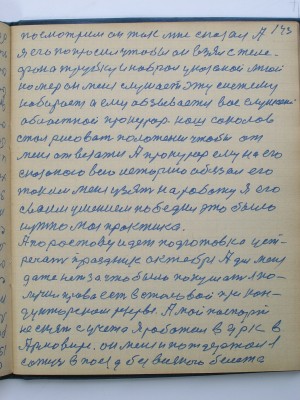 посмотрим он так мне сказал А 143
я его попросил чтобы он взял с теле-
фона трубку и набрал указаной мной
номер он меня слушает эту систему
набирает а ему обзывается вас слушает
областной прокурор. наш соколов
стал рисоват положение чтобы от
меня отвезати А прокурор ему на его
сказаного всю историю обязал его
таким меня взять на работу я его
своим умением победил это было
нужно моя практика.
А по ростову идет подготовка уст-
речать праздник октября А для меня
даже нет за что было покушати я по-
лучил права есть в столовой при кон-
дукторском резерве. А мой паспорт
не снят с учета я работал в ОРСК в
Армовире. он меня поддержал я
сажуз в поезд без всякого билета